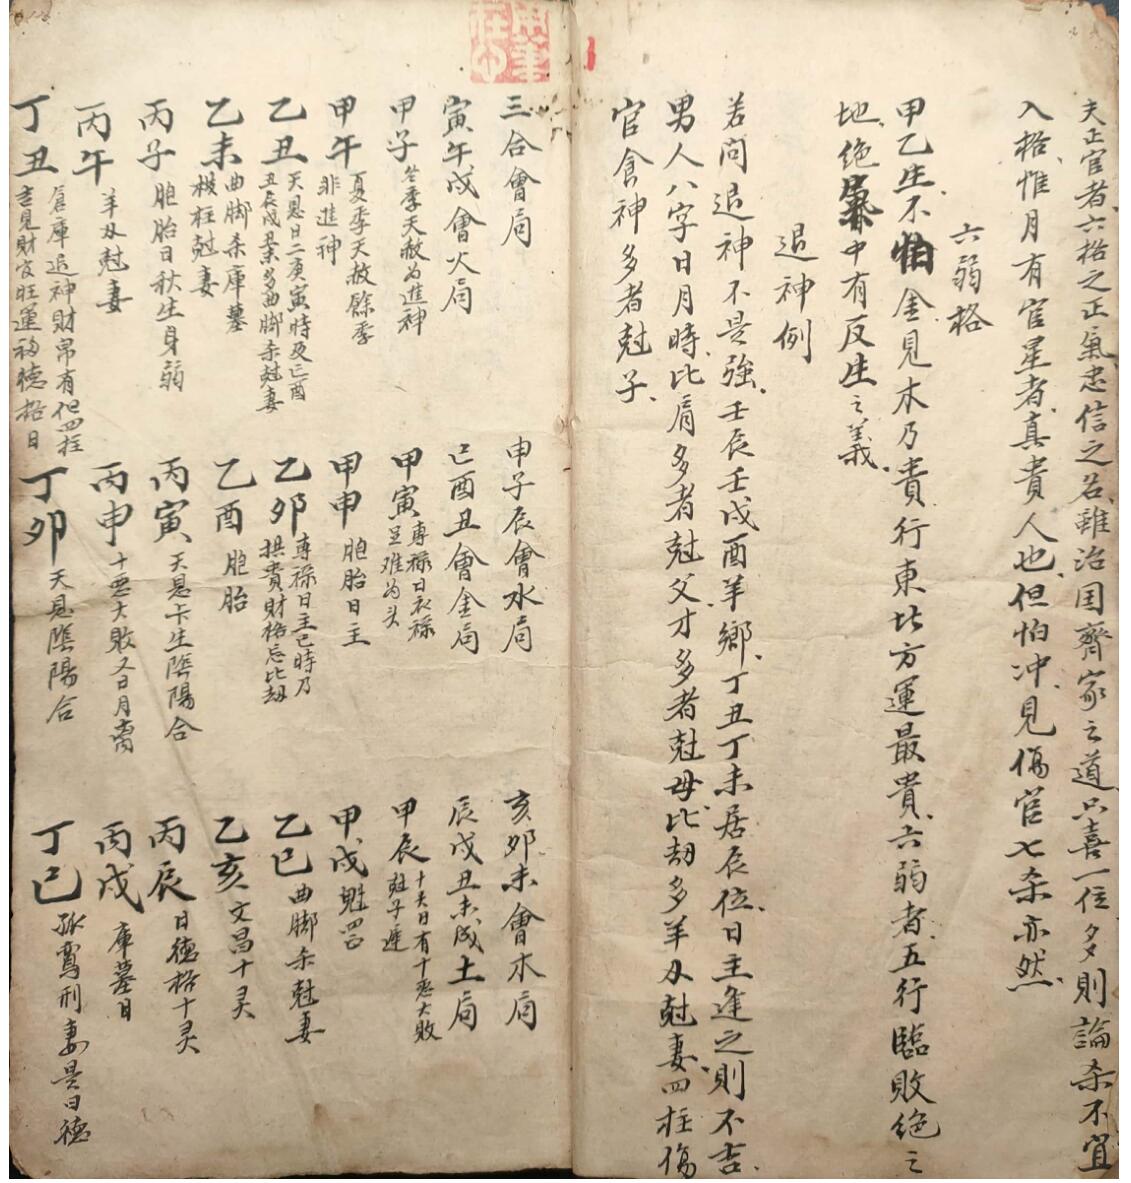 夫正官者六格之正氣忠信之名雖治国齊家之道只喜一位多則論杀不宜
入格惟月有官星者真貴人也但怕冲見傷官七杀亦然
六弱格
甲乙生不怕金見木乃貴行東北方運最貴六弱者五行臨敗絕之
地絕氣中有反生之義
退神例
若問退神不是強壬辰壬戌酉羊鄉丁丑丁未居辰位日主逢之則不吉
男人八字日月時比肩多者尅父才多者尅母比劫多羊刃尅妻四柱傷
官食神多者尅子
三合會局
申子辰會水局
亥卯未會木局
寅午戌會火局
巳酉丑會金局
辰戌丑未成土局
甲子 冬季天赦为進神
甲寅 專禄日衣禄
呈难为头
甲辰 十天日有十惡大敗
尅子遲
甲午 夏季天赦餘季
非進神
甲申 胞胎日主
甲戌 魁罡
乙丑 天恩日二庚寅時及巳酉
丑辰戌杀多曲脚杀尅妻
乙卯 專禄日主巳時乃
拱貴財格忌比劫
乙巳 曲脚杀尅妻
乙未 曲脚杀庫墓
被柱尅妻
乙酉 胞胎
乙亥 文昌十灵
丙子 胞胎日秋生身弱
丙寅 天恩卡生陰陽合
丙辰 日德格十灵
丙午 羊刃尅妻
丙申 十惡大敗又日月
丙戌 庫墓日
丁丑 倉庫退神財帛有但四柱
吉見財官旺運福德格日
丁卯 天恩陰陽合
丁巳 孤鸞刑妻是日德